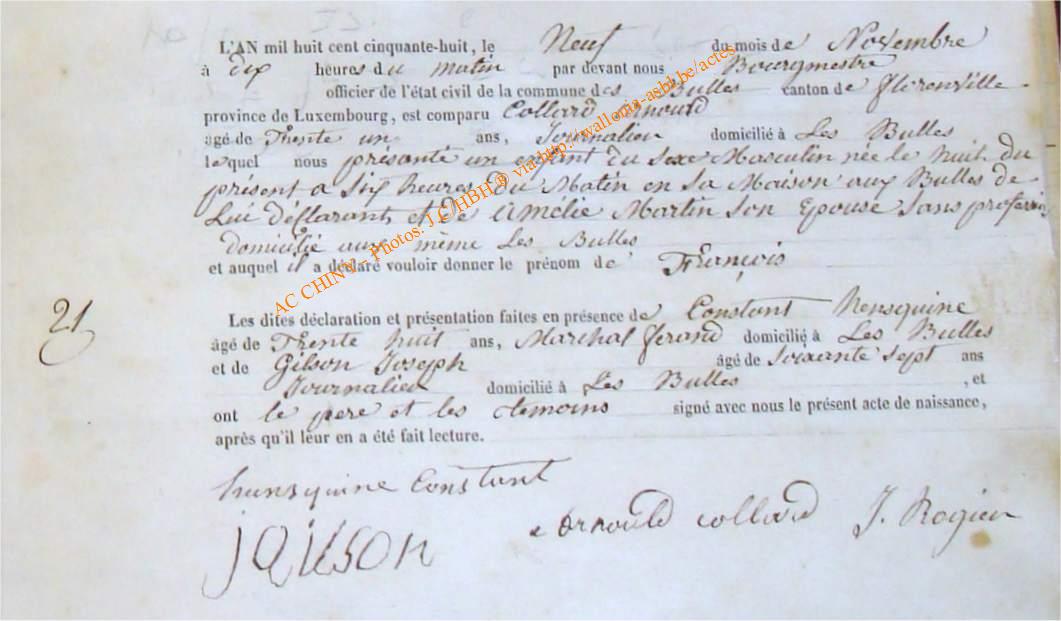 L'AN mil huit cent cinquante-huit, le Neuf du mois de Novembre
à dix heures du matin par devant nous Bourgmestre
officier de l'état civil de la commune des Bulles canton de florenville
province de Luxembourg, est comparu Collard Arnould
âgé de Trente un ans, Journalier domicilié à Les Bulles
lequel nous présante un enfant du sexe Masculin née le huit du
présent a six heures du Matin en sa Maison aux Bulles de
Lui déflarant et de Amélie Martin son Epouse sans profession
domicilié aux même Les Bulles
et auquel il a déclaré vouloir donner le prénom de François
21
Les dites déclaration et présentation faites en présence de Constant Hensquine
âgé de Trente huit ans, Marchal ferand domicilié à Les Bulles
et de Gilson Joseph âgé de Soixante sept ans
Journalier domicilié à Les Bulles , et
ont le pere et les temoins signé avec nous le présent acte de naissance,
après qu'il leur en a été fait lecture.
hensquine Constant
J Gilson
arnould collard J. Rogier
AC CHINY – Photos: J.C./HBH ® via http://wallonia-asbl.be/actes